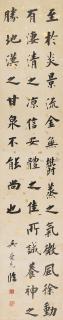 至於炎景流金無鬱蒸之氣微風徐動
有淒清之涼信安體之佳所誠養神之
勝地漢之甘泉不能尚也